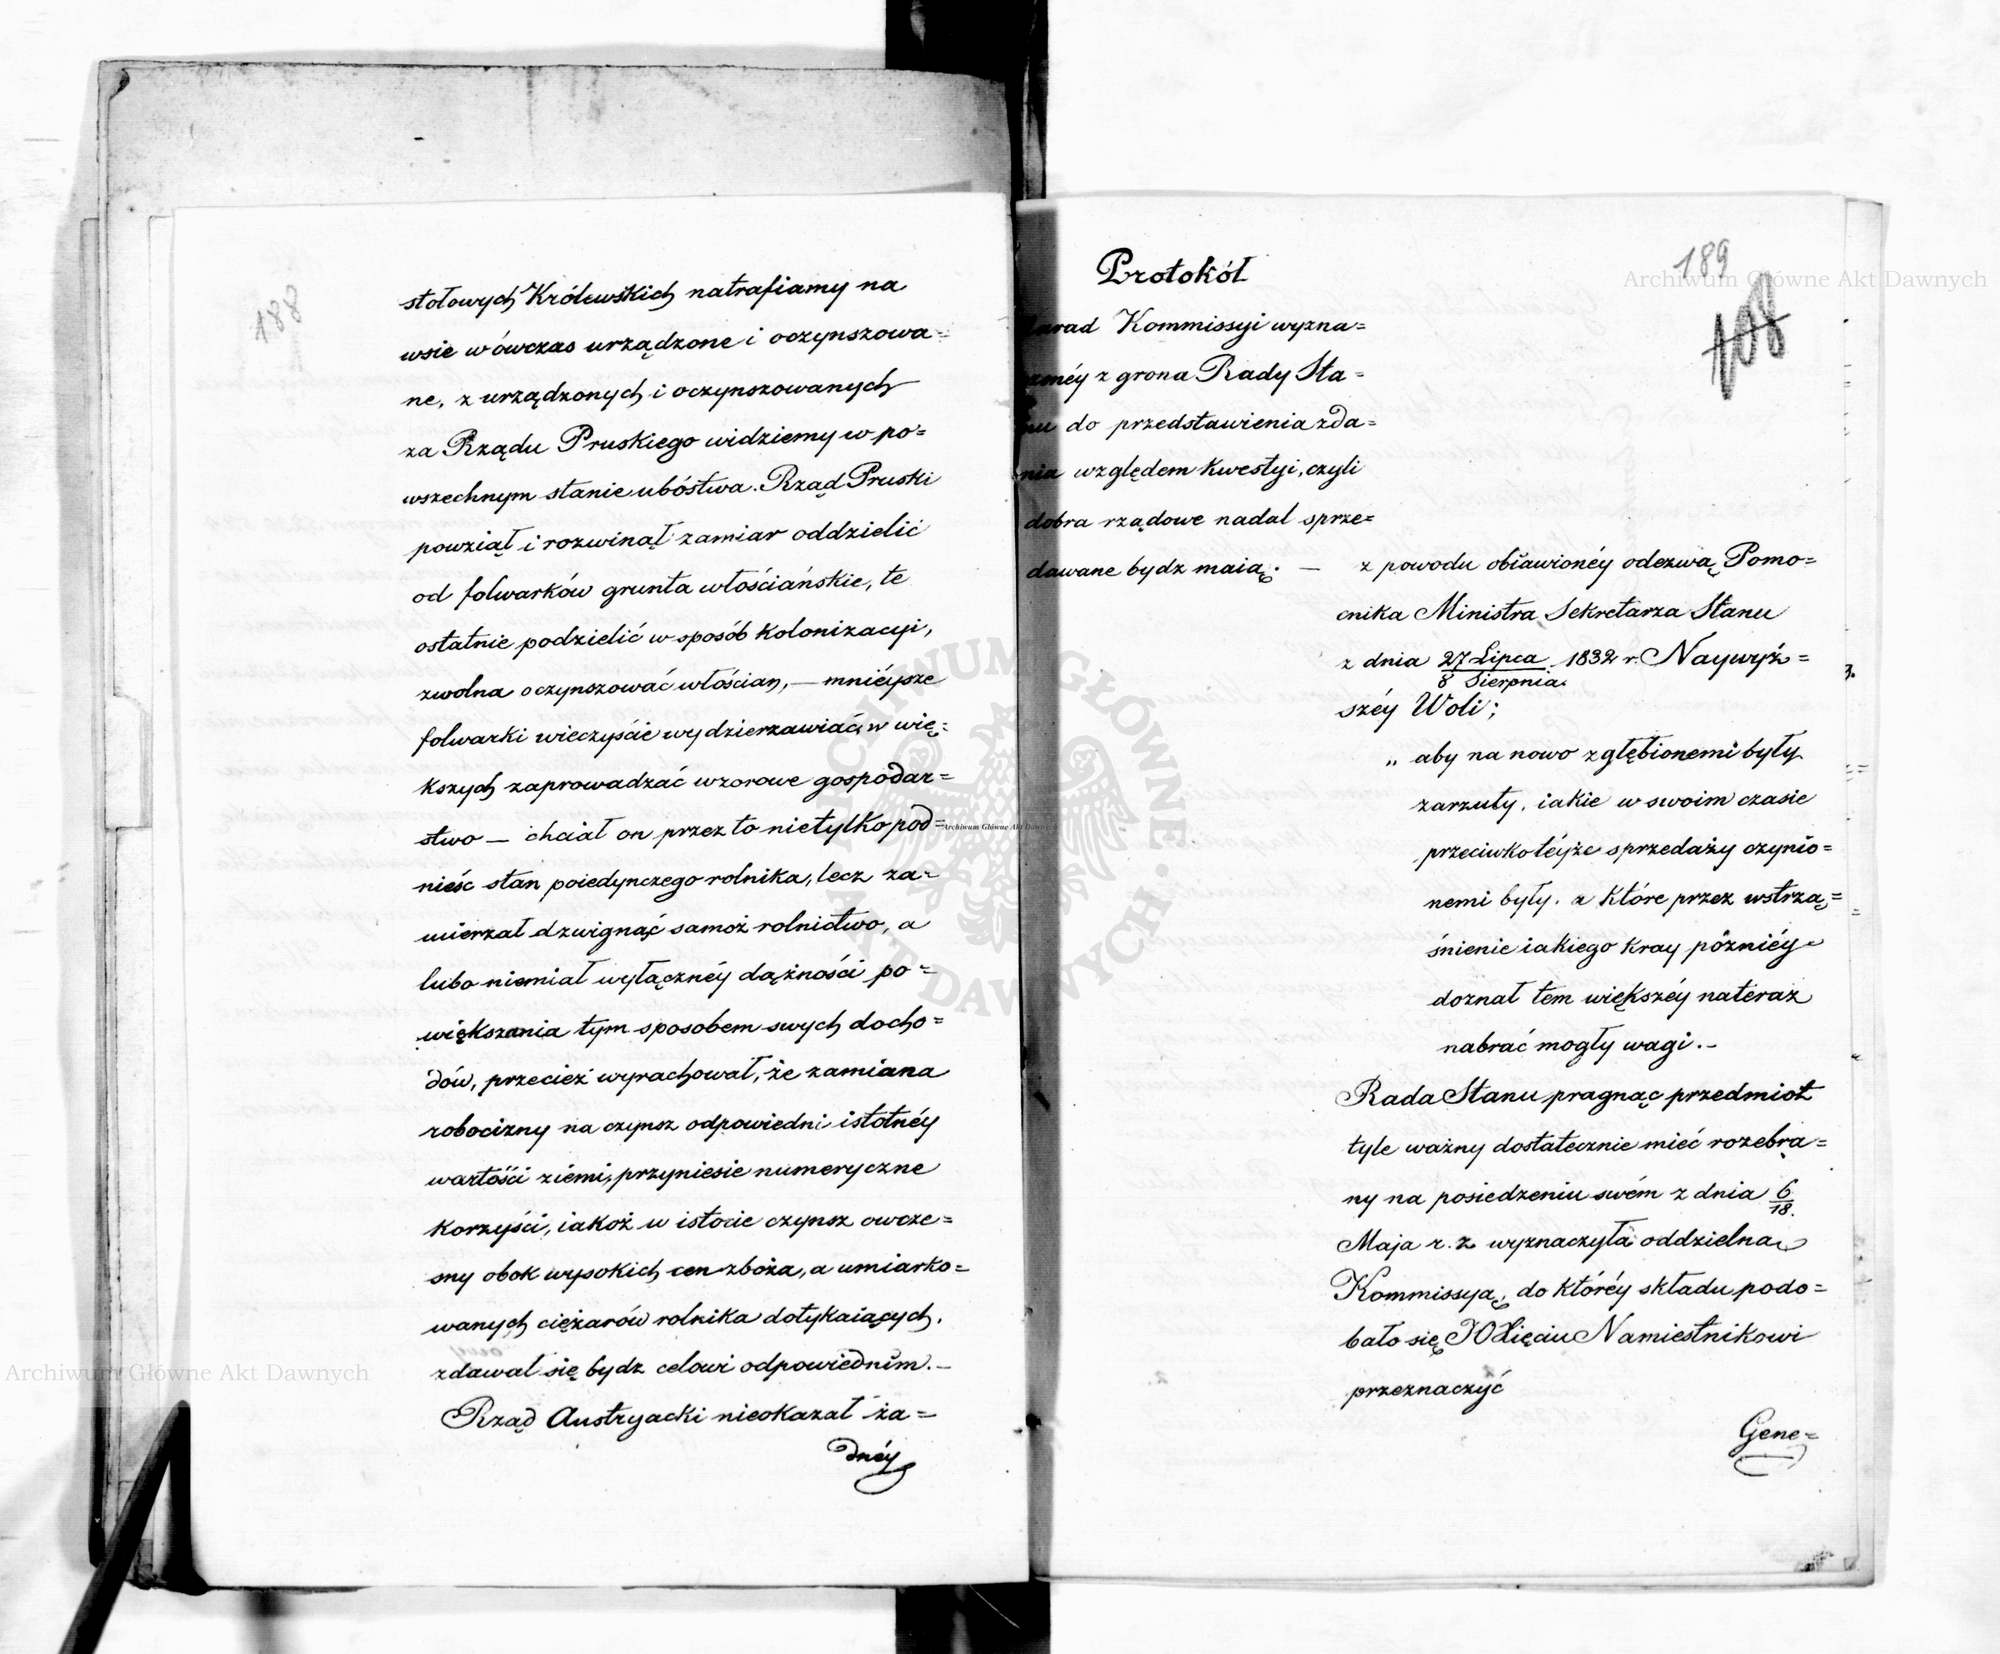 188
stołowych Królewskich natrafiamy na
wsie wówczas urządzone i oczynszowa=
ne, z urządzonych i oczynszowanych
za Rządu Pruskiego widziemy w po=
wszechnym stanie ubóstwa. Rząd Pruski
powziął i rozwinął zamiar oddzielić
od folwarków grunta włościańskie, te
ostatnie podzielić w sposób kolonizacyi,
zwolna oczynszować włościan, — mnieysze
folwarki wieczyście wydzierzawiać, w wię=
kszych zaprowadzać wzorowe gospodar=
stwo — chciał on przez to nietylko pod=
nieść stan poiedynczego rolnika, lecz za=
mierzał dzwignąć samoż rolnictwo, a
lubo niemiał wyłącznéy dążności po=
większania tym sposobem swych docho=
dów, przecież wyrachował, że zamiana
robocizny na czynsz odpowiedni istotnéy
wartości ziémi, przyniesie numeryczne
korzyści, iakoż w istocie czynsz owcze=
sny obok wysokich cen zboża, a umiarko=
wanych ciężarów rolnika dotykaiących,
zdawał się bydz celowi odpowiednim. —
Rząd Austryacki nieokazał ża=
dnéy
189
108
Protokół
narad Kommissyi wyzna=
czonéy z grona Rady Sta=
nu do przedstawienia zda=
nia względem kwestyi, czyli
dobra rządowe nadal sprze=
dawane bydz maią. — z powodu obiawionéy odezwą Pomo=
cnika Ministra Sekretarza Stanu
z dnia 27 Lipca / 8 Sierpnia 1832 r. Naywyż=
széy Woli;
„ aby na nowo zgłębionemi były
zarzuty, iakie w swoim czasie
przeciwko téyże sprzedaży czynio=
nemi były, a które przez wstrzą=
śnienie iakiego kray późniéy
doznał tem większéy nateraz
nabrać mogły wagi. —
Rada Stanu pragnąc przedmiot
tyle ważny dostatecznie mieć rozebra=
ny na posiedzeniu swém z dnia 6/18.
Maja r. z. wyznaczyła oddzielną
Kommissyą, do któréy składu podo=
bało się JO Xięciu Namiestnikowi
przeznaczyć
Gene=
Archiwum Główne Akt Dawnych
Archiwum Główne Akt Dawnych
Archiwum Główne Akt Dawnych
ARCHIWUM GŁÓWNE AKT DAWNYCH